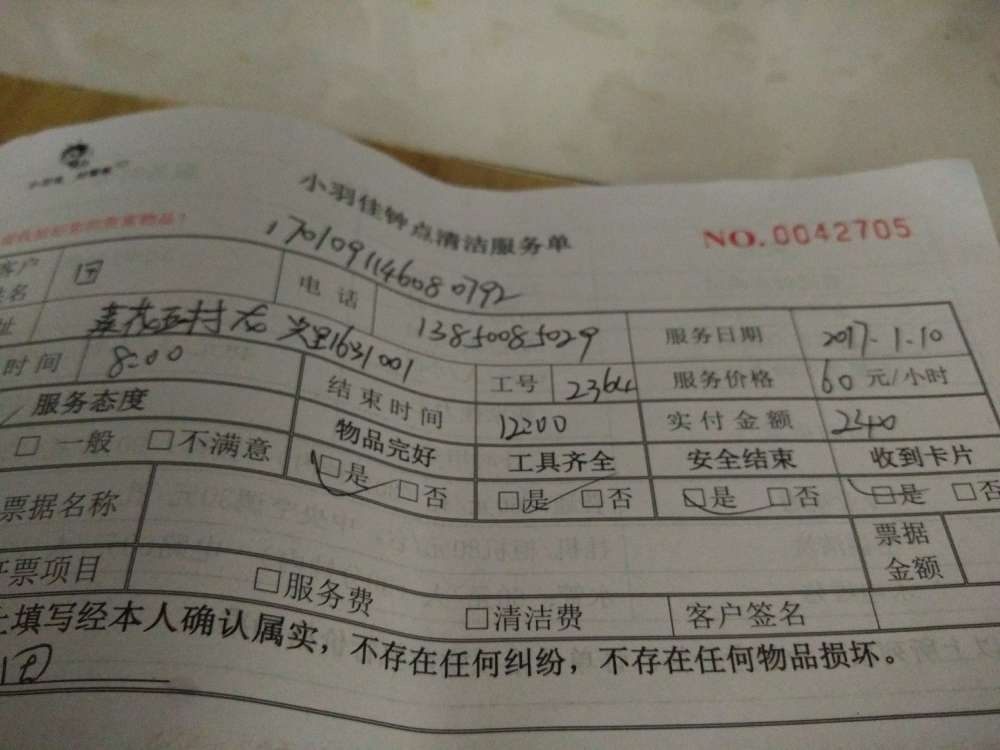 小羽佳钟点清洁服务单
NO.0042705
170109114608 0792
客户
姓名
田
电 话
13850085029
服务日期
2017.1.10
址
村
1631001
时间
8:00
结束时间
12:00
工号
2364
服务价格
60 元/小时
实付金额
240
服务态度
物品完好
工具齐全
安全结束
收到卡片
□ 一般 □ 不满意
□是 □否
□是 □否
□是 □否
□是 □否
票据名称
票据
金额
开票项目
□服务费
□清洁费
客户签名
上填写经本人确认属实，不存在任何纠纷，不存在任何物品损坏。
田